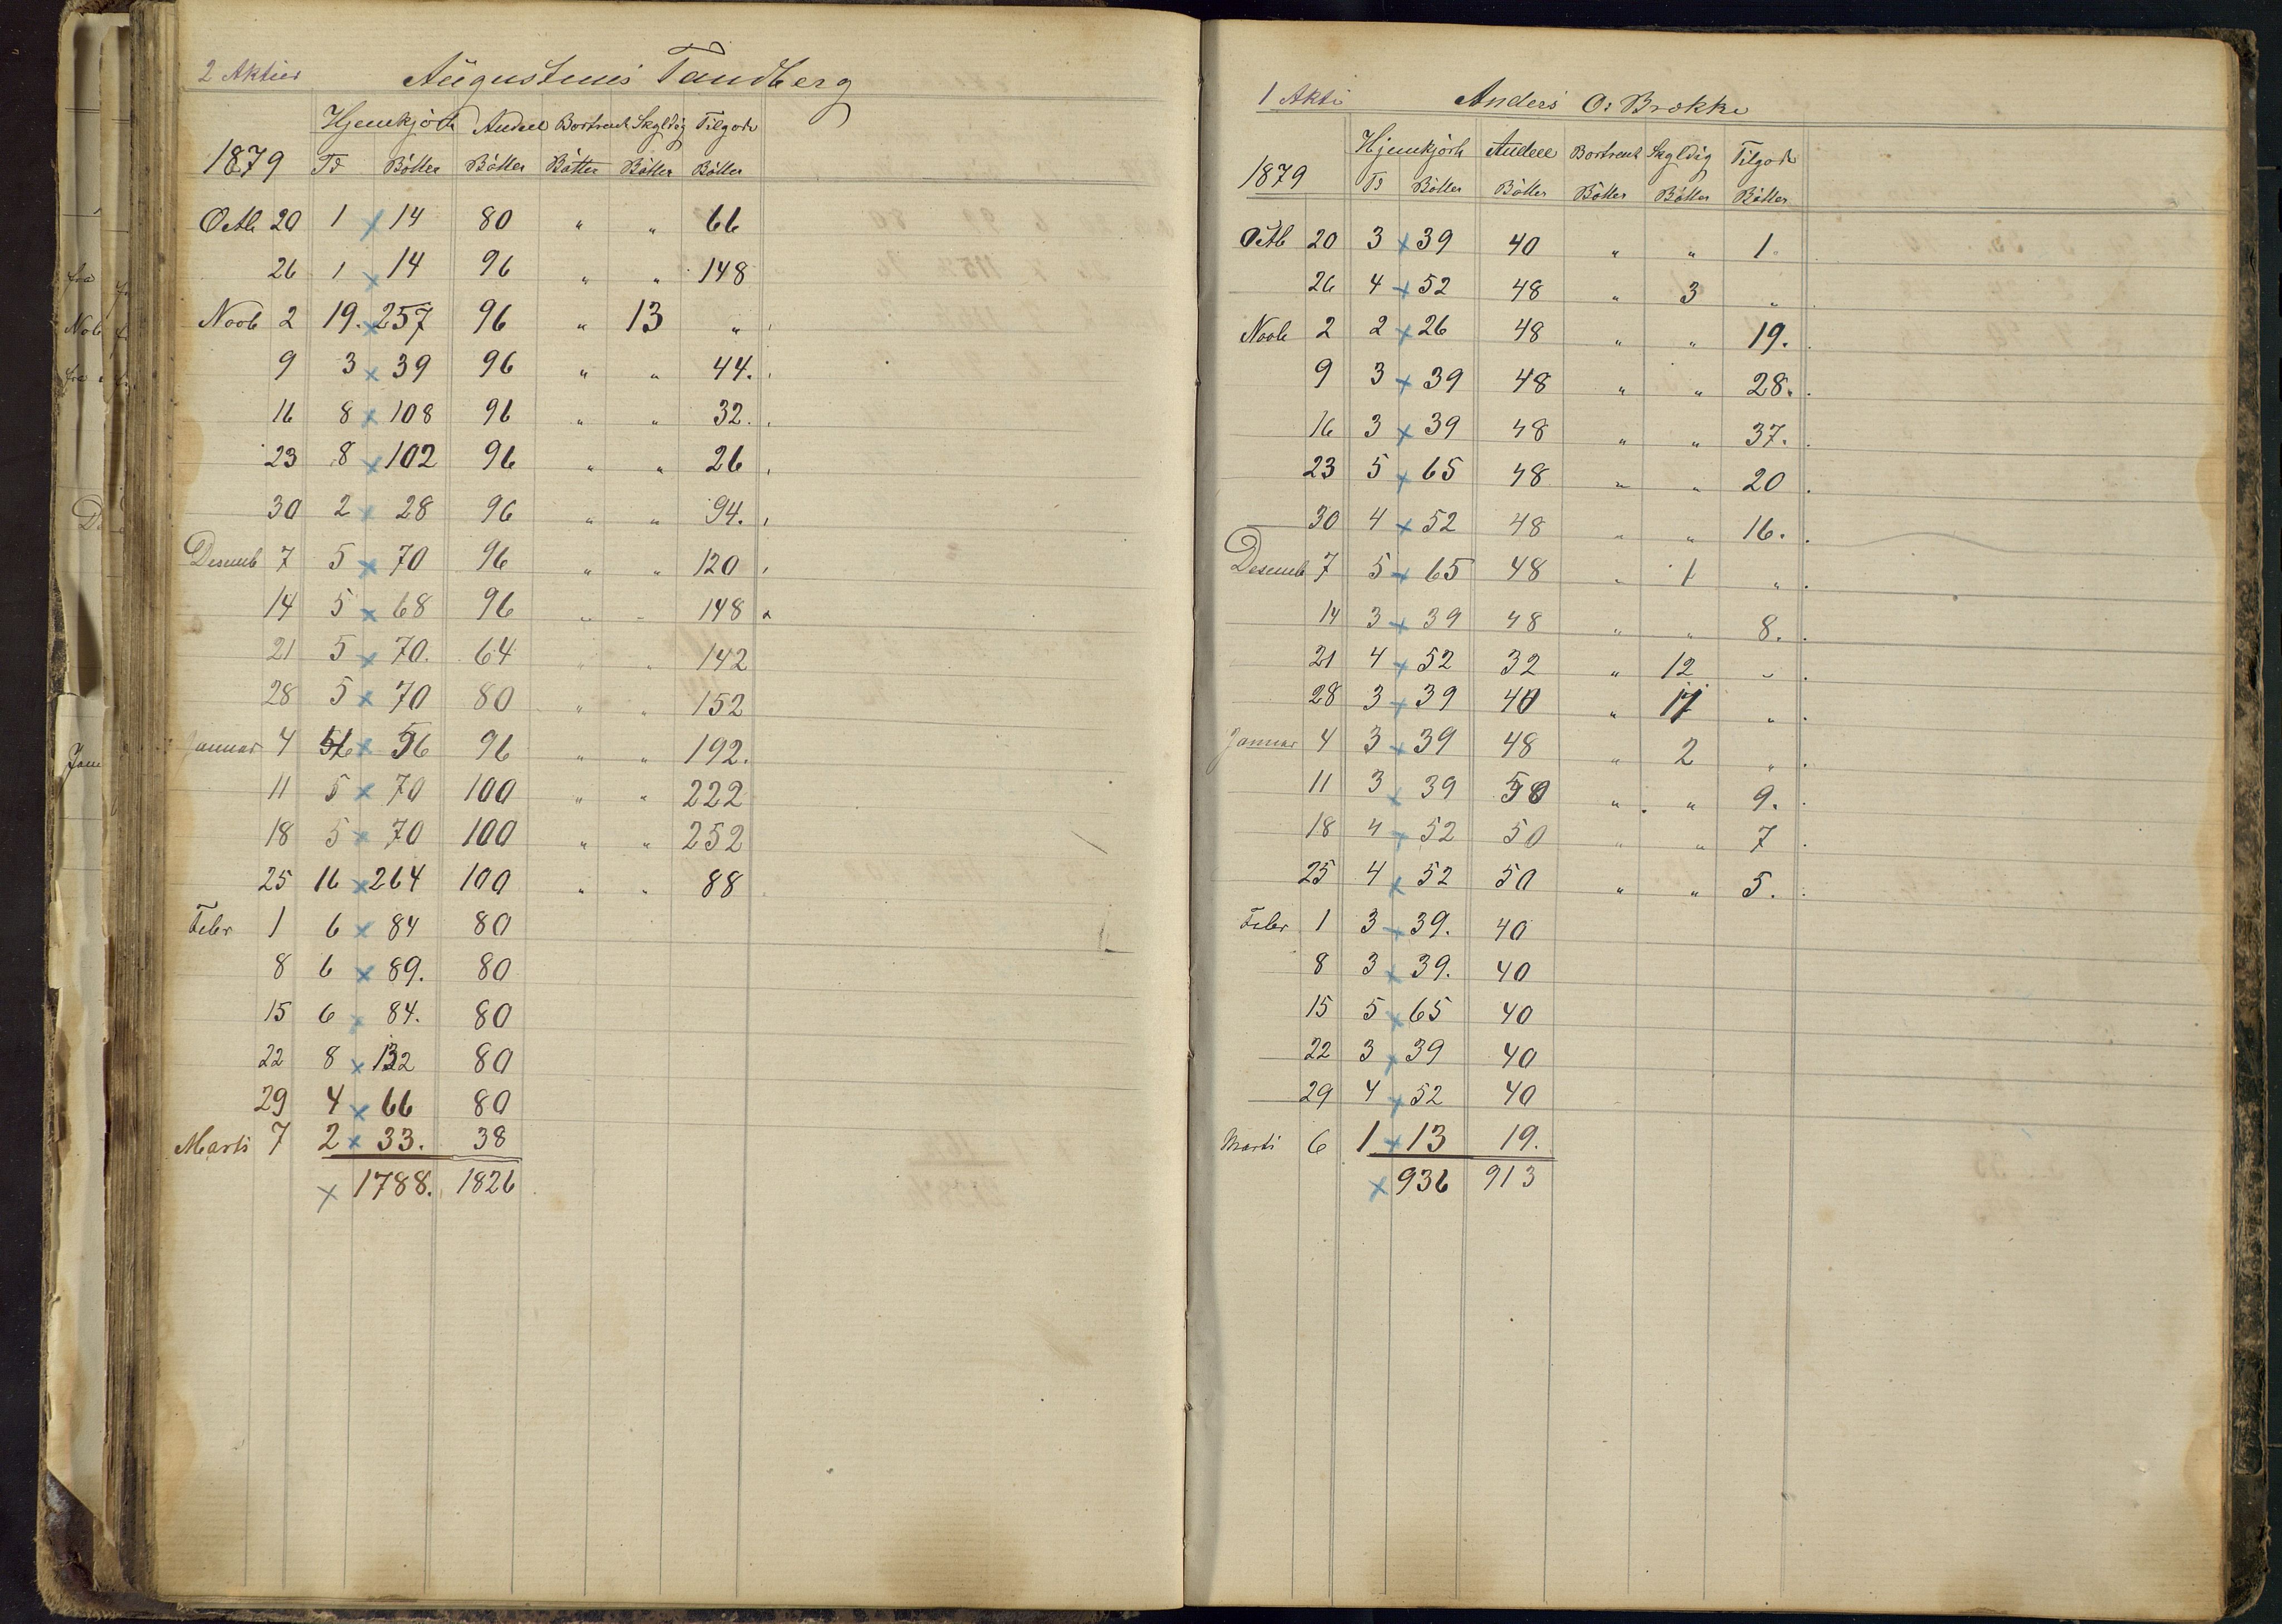 2 Aktier Augustinus Tandberg
Hjemkjört Andeel Bortsendt Skyldig Tilgode
1879 Td Bötter Bötter Bötter Bötter Bötter
Octb 20 1 x 14 80 " " 66
26 1 x 14 96 " " 148
Novb 2 19. x 257 96 " 13 "
9 3 x 39 96 " " 44.
16 8 x 108 96 " " 32.
23 8 x 102 96 " " 26
30 2 x 28 96 " " 94.
Desemb 7 5 x 70 96 " " 120
14 5 x 68 96 " " 148
21 5 x 70. 64 " " 142
28 5 x 70 80 " " 152
Januar 4 x 56 96 " " 192.
11 5 x 70 100 " " 222
18 5 x 70 100 " " 252
25 16 x 264 100 " " 88
Febr 1 6 x 84 80
8 6 x 89. 80
15 6 x 84. 80
22 8 x 132 80
29 4 x 66 80
Marts 7 2 x 33. 38
x 1788. 1826
1 Akti Anders O: Brokke
Hjemkjört Andeel Bortsendt Skyldig Tilgode
1879 Td Bötter Bötter Bötter Bötter Bötter
Octb 20 3 x 39 40 " " 1
26 4 x 52 48 " 3 "
Novb 2 2 x 26 48 " " 19.
9 3 x 39 48 " " 28.
16 3 x 39 48 " " 37.
23 5 x 65 48 " " 20
30 4 x 52 48 " " 16.
Desemb 7 5 x 65 48 " 1 "
14 3 x 39 48 " " 8.
21 4 x 52 32 " 12 "
28 3 x 39 40 " 11 "
Januar 4 3 x 39 48 " 2 "
11 3 x 39 50 " " 9.
18 4 x 52 50 " " 7
25 4 x 52 50 " " 5.
Febr 1 3 x 39. 40
8 3 x 39. 40
15 5 x 65 40
22 3 x 39 40
29 4 x 52 40
Marts 6 1 x 13 19.
x 936 913